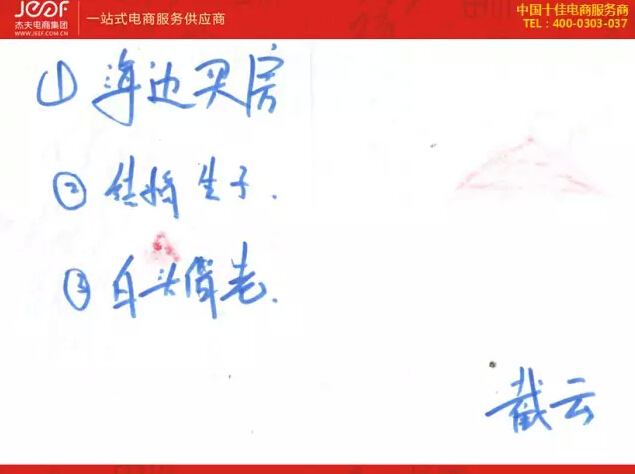 JEEF 一站式电商服务供应商 中国十佳电商服务商
杰夫电商集团 TEL：400-0303-037
WWW.JEEF.COM.CN
① 海边买房
② 结婚生子.
③ 白头偕老.
戴云